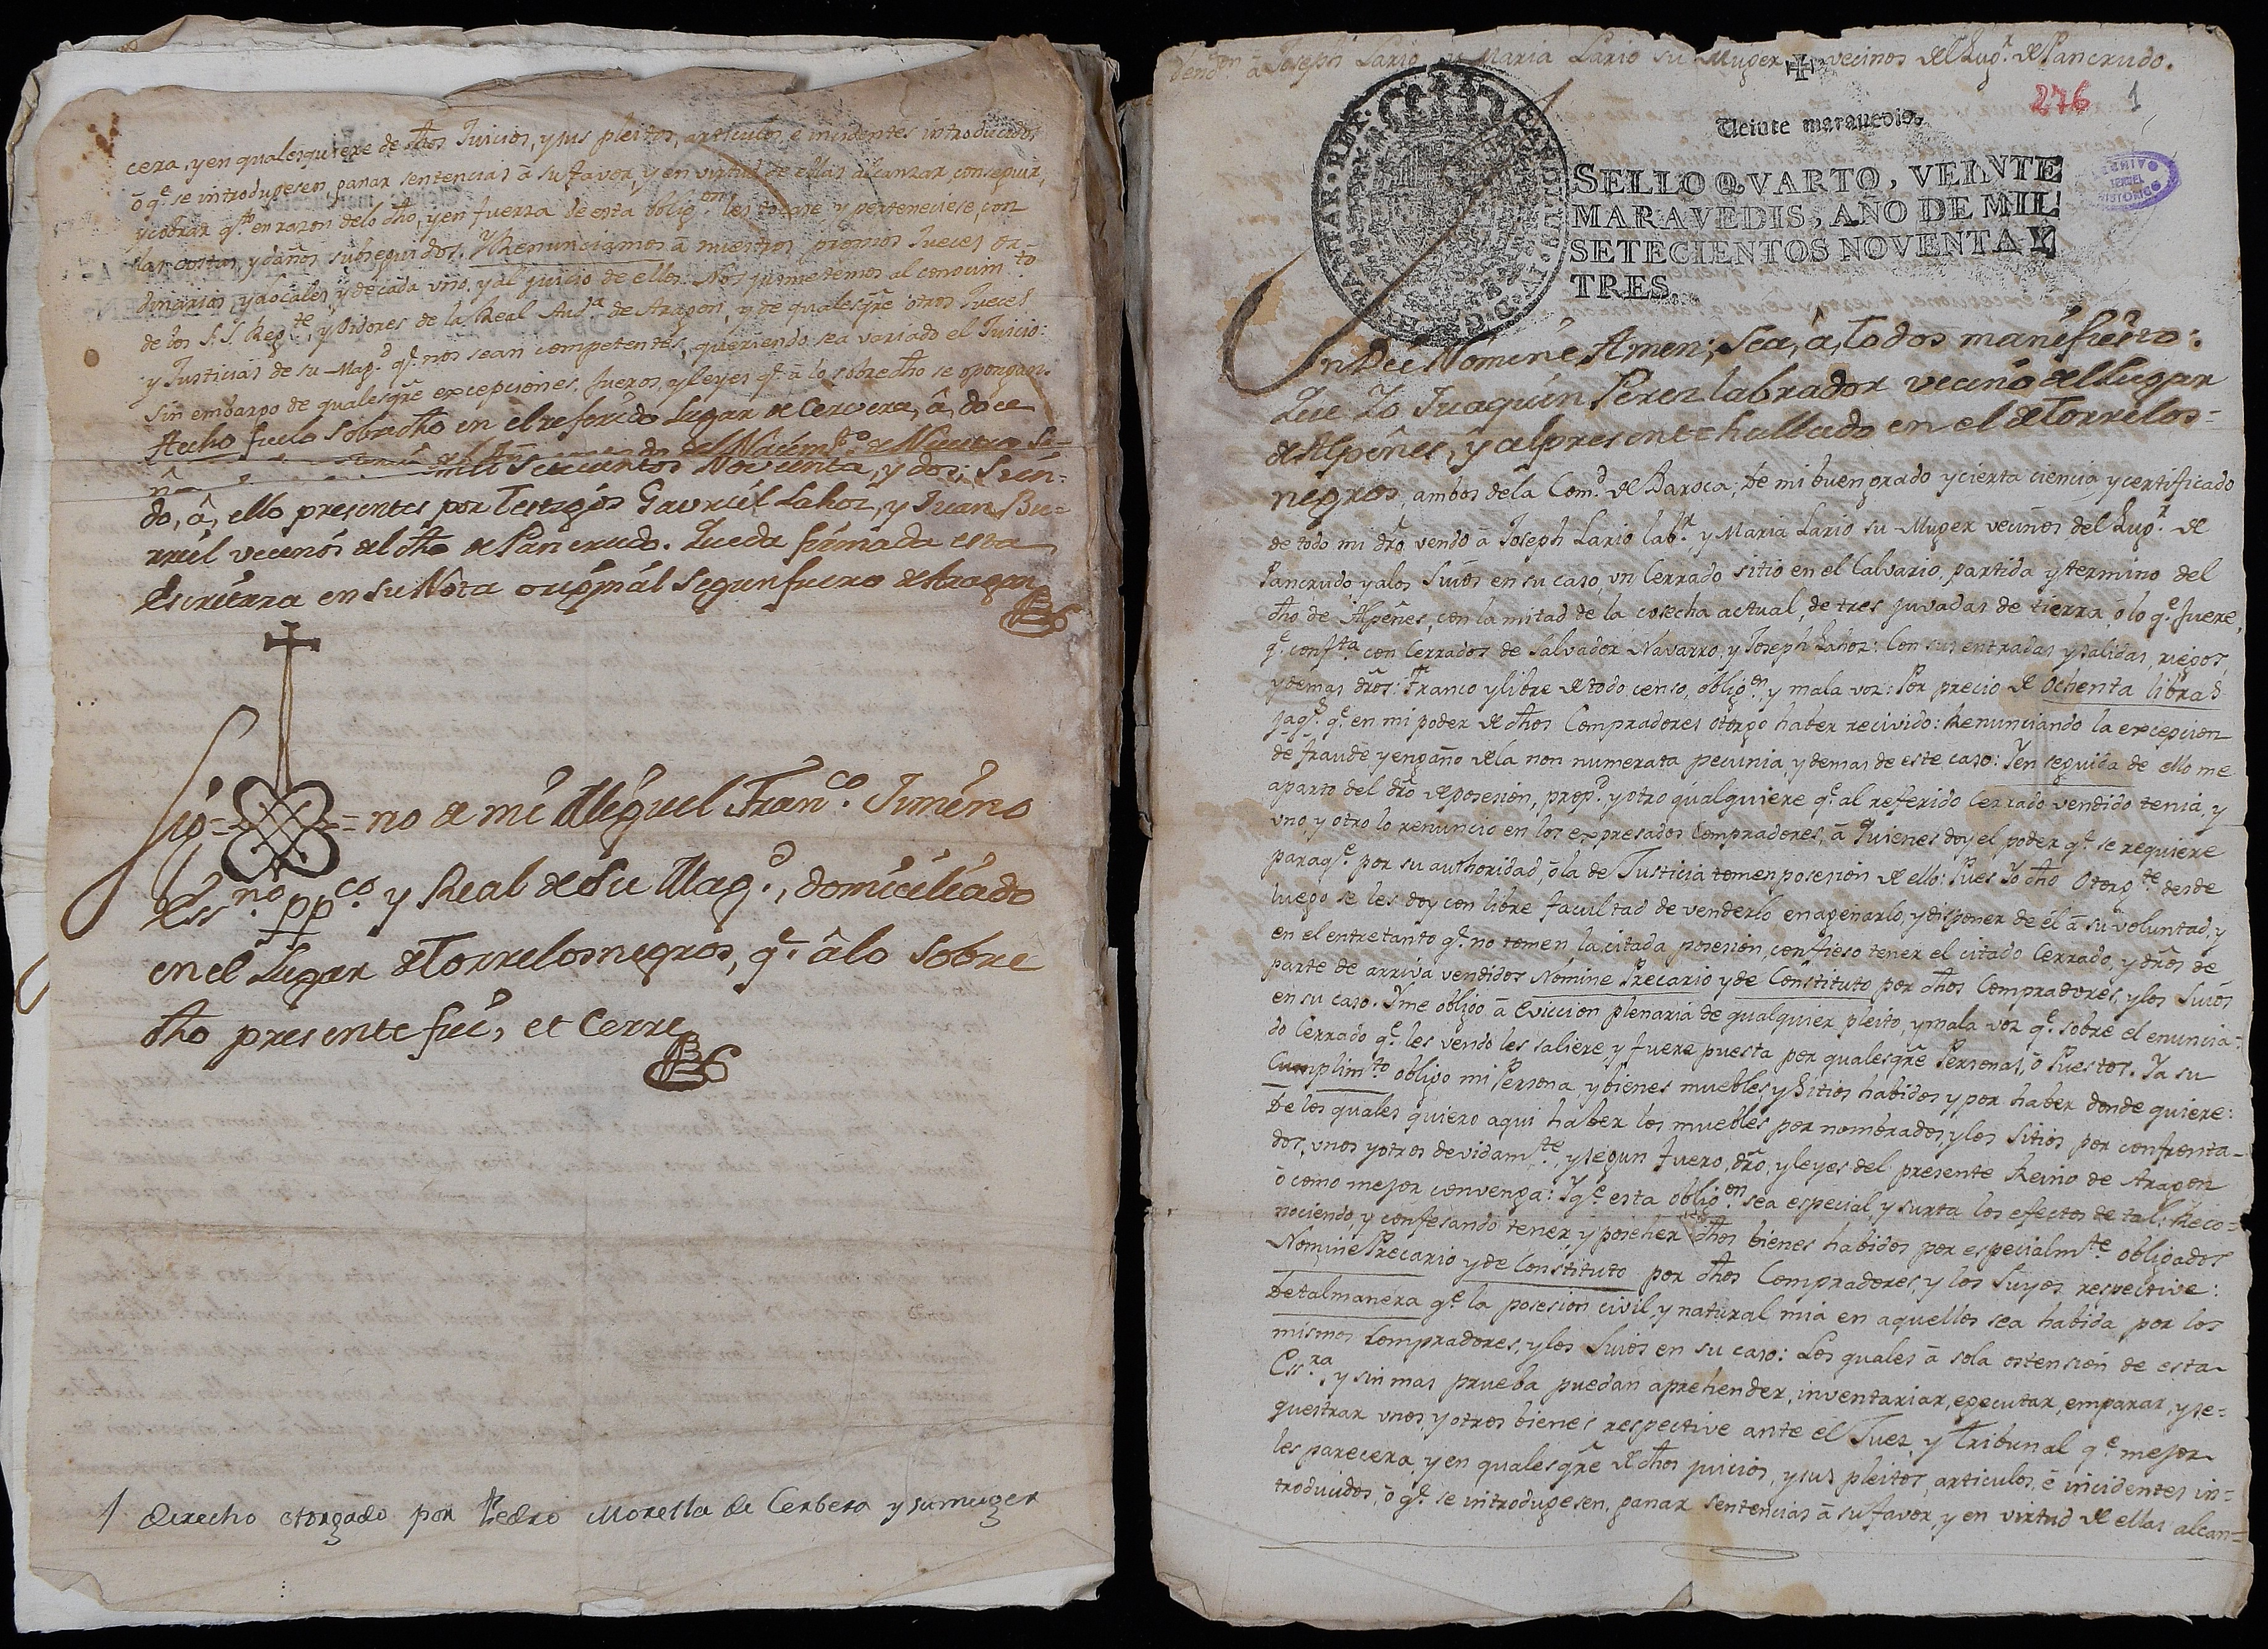 cera, y en qualesquiere de dhos Juicios, y sus pleitos, articulos, e incidentes introducidos
ò q.e se introdugesen, ganar sentencias à su favor, y en virtud de ellas alcanzar, conseguir,
y cobrar q.to en razon de lo dho, y en fuerza de esta oblig.on les tocase y perteneciese, con
las costas, y daños subseguidos. Y Renunciamos à nuestros propios Jueces or-
dinarios y locales, y de cada uno, y al juicio de ellos. Nos jusmetemos al conocim.to
de los S.S. Reg.te, y Oidores de la Real Aud.a de Aragon, y de qualesqre otros Jueces
y Justicias de su Mag.d q.e nos sean competentes, queriendo sea variado el Juicio:
sin embargo de qualesqre excepciones, fueros, y leyes q.e à lo sobredho se opongan.
Hecho fue lo sobredho en el referido Lugar de Cervera, â, doce
del Nacim.to de Nuestro Se-
mil Setecientos Noventa, y dos; Sien-
do, â, ello presentes por Testigos Gavriel Lahoz, y Juan Bu-
rriel vecinos del dho de Pancrudo. Queda firmada esta
Escritura en su Nota original segun fuero de Aragon
Sig= =no de mi Miguel Fran.co Jimeno
Ess.no pp.co y Real de Su Mag.d, domiciliado
en el Lugar de Torrelosnegros, q.e â lo Sobre
dho presente fui, et Cerre
1 derecho otorgado por Pedro Morella de Cerbera y su muger
Vend.on à Joseph Lario y Maria Lario su Muger vecinos del Lug.r de Pancrudo.
276 1
Veinte maravedis
SELLO QVARTO, VEINTE
MARAVEDIS, AÑO DE MIL
SETECIENTOS NOVENTA Y
TRES.
In Dei Nomine Amen; Sea, â, todos manifiesto:
Que Yo Juaquin Perez labrador vecino del Lugar
de Alpeñes, y al presente hallado en el de Torrelos=
negros, ambos de la Com.d de Daroca, De mi buen grado y cierta ciencia, y certificado
de todo mi dro, vendo à Joseph Lario lab.r y Maria Lario su Muger vecinos del Lug.r de
Pancrudo, y a los Suios en su caso, un Cerrado sitio en el Calvario, partida y termino del
dho de Alpeñes, con la mitad de la cosecha actual, de tres juvadas de tierra, ò lo q.e fuere,
q.e conf.ta con Cerrados de Salvador Navarro, y Joseph Lahoz: Con sus entradas y salidas, riegos,
y demas dros: Franco y libre de todo censo, oblig.on y mala voz: Por precio de ochenta libras
jaq.s q.e en mi poder de dhos Compradores otorgo haber recivido: Renunciando la excepcion
de fraude y engaño de la non numerata pecunia, y demas de este caso: Y en seguida de ello me
aparto del dro de posesion, prop.d y otro qualquiere q.e al referido Cerrado vendido tenia, y
uno, y otro lo renuncio en los expresados Compradores, à Quienes doy el poder q.e se requiere
para q.e por su authoridad, ò la de Justicia tomen posesion de ello: Pues Yo dho Otorg.te desde
luego se les doy con libre facultad de venderlo enagenarlo, y disponer de él à su voluntad, y
en el entretanto q.e no tomen la citada posesion, confieso tener el citado Cerrado, y dros de
parte de arriva vendidos Nómine Precario y de Constituto por dhos Compradores, y los Suios
en su caso. Y me obligo à Eviccion plenaria de qualquier pleito, y mala voz q.e sobre el enuncia=
do Cerrado q.e les vendo les saliere, y fuere puesta por qualesqre Personas, ò Puestos. Y a su
Cumplim.to obligo mi Persona, y bienes muebles, y Sitios habidos y por haber donde quiere:
De los quales quiero aqui haber los muebles por nombrados, y los Sitios por confronta-
dos, unos y otros devidam.te y segun fuero, dro, y leyes del presente Reino de Aragon
ò como mejor convenga: Y q.e esta oblig.on sea especial, y surta los efectos de tal: Reco=
nociendo, y confesando tener, y poseher dhos bienes habidos por especialm.te obligados
Nomine Precario y de Constituto por dhos Compradores, y los Suyos respective:
De tal manera q.e la posesion civil, y natural mia en aquellos sea habida por los
mismos Compradores, y los Suios en su caso: Los quales à sola ostension de esta
Ess.ra y sin mas prueba puedan aprehender, inventariar, executar, emparar, y se=
questrar unos, y otros bienes respective ante el Juez, y Tribunal q.e mejor
les parecera, y en qualesqre de dhos juicios, y sus pleitos, articulos, è incidentes in=
troducidos, ò q.e se introdugesen, ganar sentencias à su favor, y en virtud de ellas alcan=